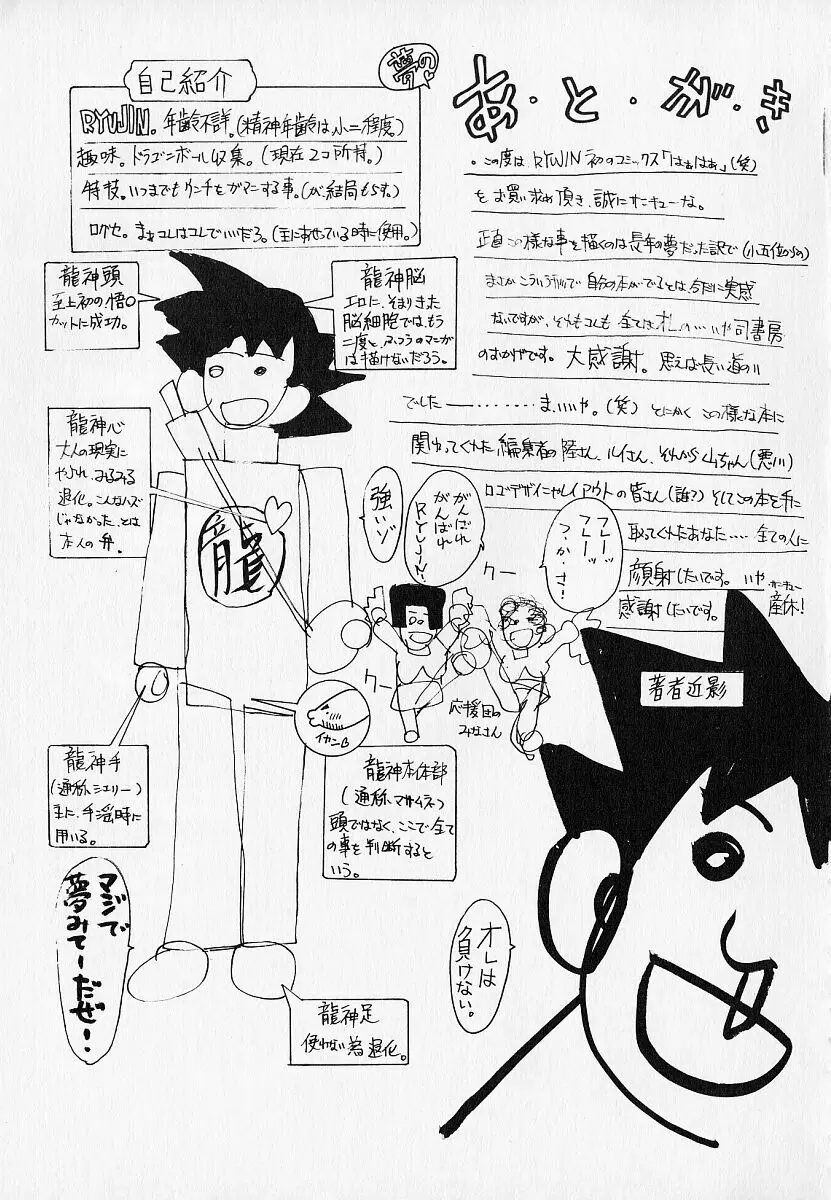 あ・と・が・き
・この度は RYUJIN 初のコミックス「はぁはぁ」(笑)
をお買い求め頂き、誠にサンキューな。
正直この様な事を描くのは長年の夢だった訳で(小五位からの)
まさかこういう
で自分の本がでるとは今だに実感
ないですが、それもコレも全ては
の…いや司書房
のおかげです。大感謝。思えば長い道のり
でした――………ま、いいや。(笑)とにかくこの様な本に
関わってくれた編集者の陸さん、ルイさん、それから山ちゃん(悪川)
ロゴデザインやレイアウトの皆さん(誰?)そしてこの本を手に
取ってくれたあなた……全ての人に
顔射したいです。いや、
感謝したいです。
サンキュー
産休!
夢の♡
自己紹介
RYUJIN。年齢不詳。(精神年齢は、小二程度)
趣味。ドラゴンボール収集。(現在2コ所持。)
特技。いつまでもウンチをガマンする事。(が、結局もらす。)
口グセ。まぁコレはコレでいいだろ。(主にあせっている時に使用。)
龍神頭
至上初の悟○
カットに成功。
龍神脳
エロに、そまりきた
脳細胞では、もう
二度と、ふつうのマンガ
は描けないだろう。
龍神心
大人の現実に
やぶれ、みるみる
退化。こんなハズ
じゃなかった、とは
本人の弁。
龍
強いゾ
がんばれ
がんばれ
RYUJIN!
フレーッ
フレーッ
つ・か・さ!
クー
クー
応援団の
みなさん
著者近影
イカンB
龍神手
(通称シェリー)
主に、手淫時に
用いる。
龍神本体部
(通称、マサムネ)
頭ではなく、ここで全て
の事を判断すると
いう。
マジで
夢みてーだぜ!
オレは
負けない。
龍神足
使わない為退化。